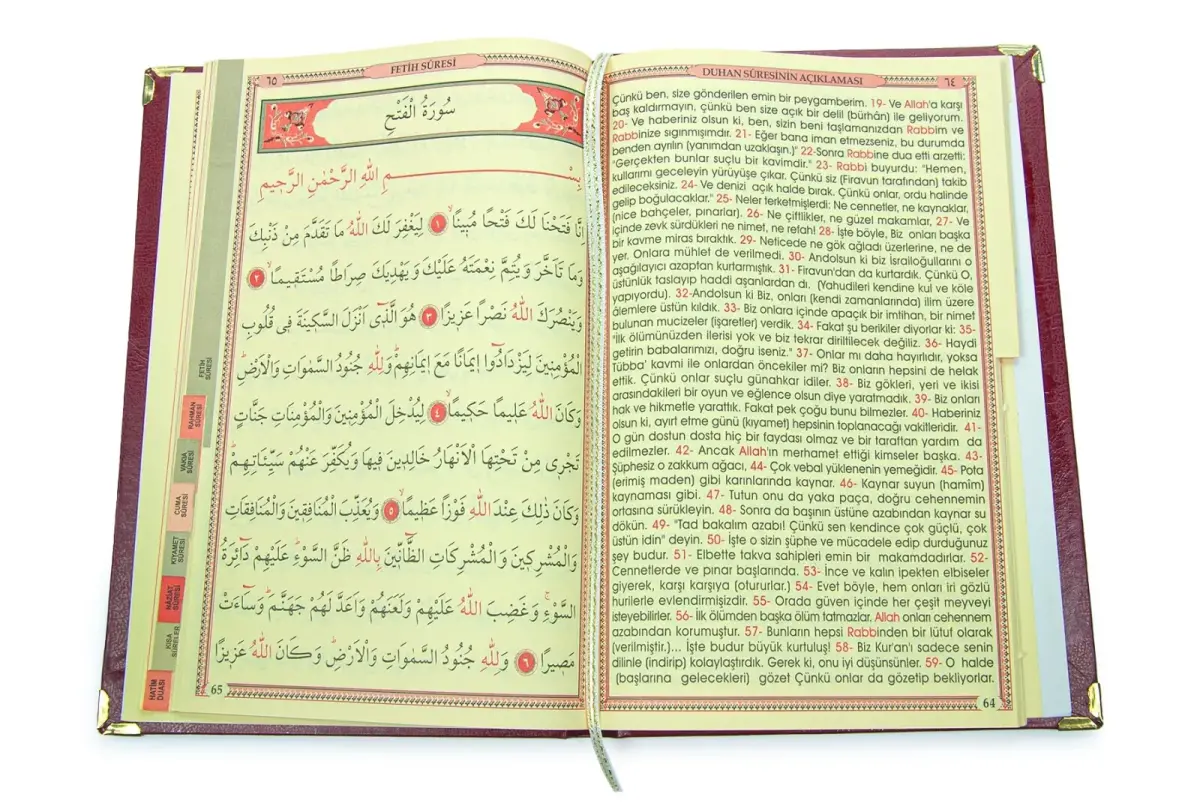 ٦٤
DUHAN SÛRESİNİN AÇIKLAMASI
Çünkü ben, size gönderilen emin bir peygamberim. 19- Ve Allah'a karşı
baş kaldırmayın, çünkü ben size açık bir delil (bürhân) ile geliyorum.
20- Ve haberiniz olsun ki, ben, sizin beni taşlamanızdan Rabbim ve
Rabbinize sığınmışımdır. 21- Eğer bana iman etmezseniz, bu durumda
benden ayrılın (yanımdan uzaklaşın.)" 22-Sonra Rabbine dua etti arzetti:
"Gerçekten bunlar suçlu bir kavimdir." 23- Rabbi buyurdu: "Hemen,
kullarımı geceleyin yürüyüşe çıkar. Çünkü siz (Firavun tarafından) takib
edileceksiniz. 24- Ve denizi açık halde bırak. Çünkü onlar, ordu halinde
gelip boğulacaklar." 25- Neler terketmişlerdi: Ne cennetler, ne kaynaklar,
(nice bahçeler, pınarlar). 26- Ne çiftlikler, ne güzel makamlar, 27- Ve
içinde zevk sürdükleri ne nimet, ne refah! 28- İşte böyle, Biz onları başka
bir kavme miras bıraktık. 29- Neticede ne gök ağladı üzerlerine, ne de
yer. Onlara mühlet de verilmedi. 30- Andolsun ki biz İsrailoğullarını o
aşağılayıcı azaptan kurtarmıştık. 31- Firavun'dan da kurtardık. Çünkü O,
üstünlük taslayıp haddi aşanlardan dı. (Yahudileri kendine kul ve köle
yapıyordu). 32-Andolsun ki Biz, onları (kendi zamanlarında) ilim üzere
âlemlere üstün kıldık. 33- Biz onlara içinde apaçık bir imtihan, bir nimet
bulunan mucizeler (işaretler) verdik. 34- Fakat şu berikiler diyorlar ki: 35-
"İlk ölümünüzden ilerisi yok ve biz tekrar diriltilecek değiliz. 36- Haydi
getirin babalarımızı, doğru iseniz." 37- Onlar mı daha hayırlıdır, yoksa
Tübba' kavmi ile onlardan öncekiler mi? Biz onların hepsini de helak
ettik. Çünkü onlar suçlu günahkar idiler. 38- Biz gökleri, yeri ve ikisi
arasındakileri bir oyun ve eğlence olsun diye yaratmadık. 39- Biz onları
hak ve hikmetle yarattık. Fakat pek çoğu bunu bilmezler. 40- Haberiniz
olsun ki, ayırt etme günü (kıyamet) hepsinin toplanacağı vakitleridir. 41-
O gün dostun dosta hiç bir faydası olmaz ve bir taraftan yardım da
edilmezler. 42- Ancak Allah'ın merhamet ettiği kimseler başka. 43-
Şüphesiz o zakkum ağacı, 44- Çok vebal yüklenenin yemeğidir. 45- Pota
(erimiş maden) gibi karınlarında kaynar. 46- Kaynar suyun (hamîm)
kaynaması gibi. 47- Tutun onu da yaka paça, doğru cehennemin
ortasına sürükleyin. 48- Sonra da başının üstüne azabından kaynar su
dökün. 49- "Tad bakalım azabı! Çünkü sen kendince çok güçlü, çok
üstün idin" deyin. 50- İşte o sizin şüphe ve mücadele edip durduğunuz
şey budur. 51- Elbette takva sahipleri emin bir makamdadırlar. 52-
Cennetlerde ve pınar başlarında. 53- İnce ve kalın ipekten elbiseler
giyerek, karşı karşıya (otururlar.) 54- Evet böyle, hem onları iri gözlü
hurilerle evlendirmişizdir. 55- Orada güven içinde her çeşit meyveyi
isteyebilirler. 56- İlk ölümden başka ölüm tatmazlar. Allah onları cehennem
azabından korumuştur. 57- Bunların hepsi Rabbinden bir lütuf olarak
(verilmiştir.)... İşte budur büyük kurtuluş! 58- Biz Kur'an'ı sadece senin
dilinle (indirip) kolaylaştırdık. Gerek ki, onu iyi düşünsünler. 59- O halde
(başlarına gelecekleri) gözet Çünkü onlar da gözetip bekliyorlar.
64
٦٥
FETİH SÛRESİ
سُورَةُ الْفَتْحِ
بِسْمِ اللهِ الرَّحْمٰنِ الرَّحِيمِ
اِنَّا فَتَحْنَا لَكَ فَتْحًا مُبِينًاۙ ١ لِيَغْفِرَ لَكَ اللهُ مَا تَقَدَّمَ مِنْ ذَنْبِكَ
وَمَا تَاَخَّرَ وَيُتِمَّ نِعْمَتَهُ عَلَيْكَ وَيَهْدِيَكَ صِرَاطًا مُسْتَقِيمًاۙ ٢
وَيَنْصُرَكَ اللهُ نَصْرًا عَزِيزًا ٣ هُوَ الَّذِى اَنْزَلَ السَّكِينَةَ فِى قُلُوبِ
الْمُؤْمِنِينَ لِيَزْدَادُوا اِيمَانًا مَعَ اِيمَانِهِمْۜ وَلِلّٰهِ جُنُودُ السَّمٰوَاتِ وَالْاَرْضِۜ
وَكَانَ اللهُ عَلِيمًا حَكِيمًاۙ ٤ لِيُدْخِلَ الْمُؤْمِنِينَ وَالْمُؤْمِنَاتِ جَنَّاتٍ
تَجْرِى مِنْ تَحْتِهَا الْاَنْهَارُ خَالِدِينَ فِيهَا وَيُكَفِّرَ عَنْهُمْ سَيِّئَاتِهِمْۜ
وَكَانَ ذٰلِكَ عِنْدَ اللهِ فَوْزًا عَظِيمًاۙ ٥ وَيُعَذِّبَ الْمُنَافِقِينَ وَالْمُنَافِقَاتِ
وَالْمُشْرِكِينَ وَالْمُشْرِكَاتِ الظَّانِّينَ بِاللهِ ظَنَّ السَّوْءِۜ عَلَيْهِمْ دَائِرَةُ
السَّوْءِۚ وَغَضِبَ اللهُ عَلَيْهِمْ وَلَعَنَهُمْ وَاَعَدَّ لَهُمْ جَهَنَّمَۜ وَسَاءَتْ
مَصِيرًا ٦ وَلِلّٰهِ جُنُودُ السَّمٰوَاتِ وَالْاَرْضِۜ وَكَانَ اللهُ عَزِيزًا
65
FETİH
SÛRESİ
RAHMAN
SÛRESİ
VAKIA
SÛRESİ
CUMA
SÛRESİ
KIYAMET
SÛRESİ
NAZİAT
SÛRESİ
KISA
SÛRELER
HATİM
DUASI